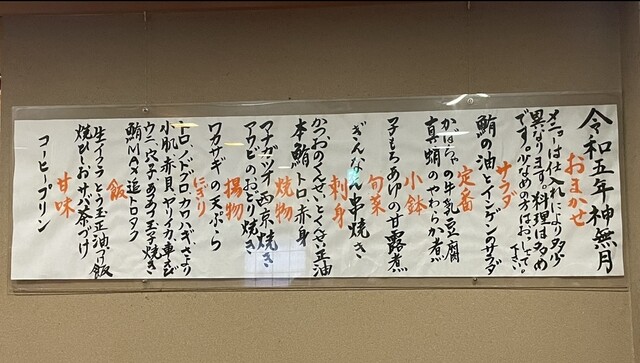 令和五年神無月
おまかせ
メニューは仕入れにより多少
異なります。料理は多め
です。少なめの方はおっしゃって
下さい。
サラダ
鮪の油とインゲンのサラダ
定番
かぼちゃの牛乳豆腐
真蛸のやわらか煮
小鉢
子もちあゆの甘露煮
旬菜
ぎんなん串焼き
刺身
かつおのくんせい
本鮪トロ赤身
焼物
マナガツオ西京焼き
アワビのおどり焼き
揚物
ワカサギの天ぷら
にぎり
トロ ノドグロ カワハギ さより
小肌 赤貝 ヤリイカ 車えび
ウニ 穴子 玉子焼き
鮪MAX追トロタク
飯
生イクラ とろ玉正油 飯
焼 お茶漬づけ
甘味
コーヒープリン